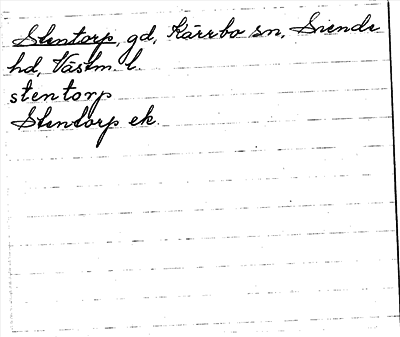 Stentorp, gd, Kärrbo sn, Siende
hd, Västm. l.
stentorp
Stentorp ek.